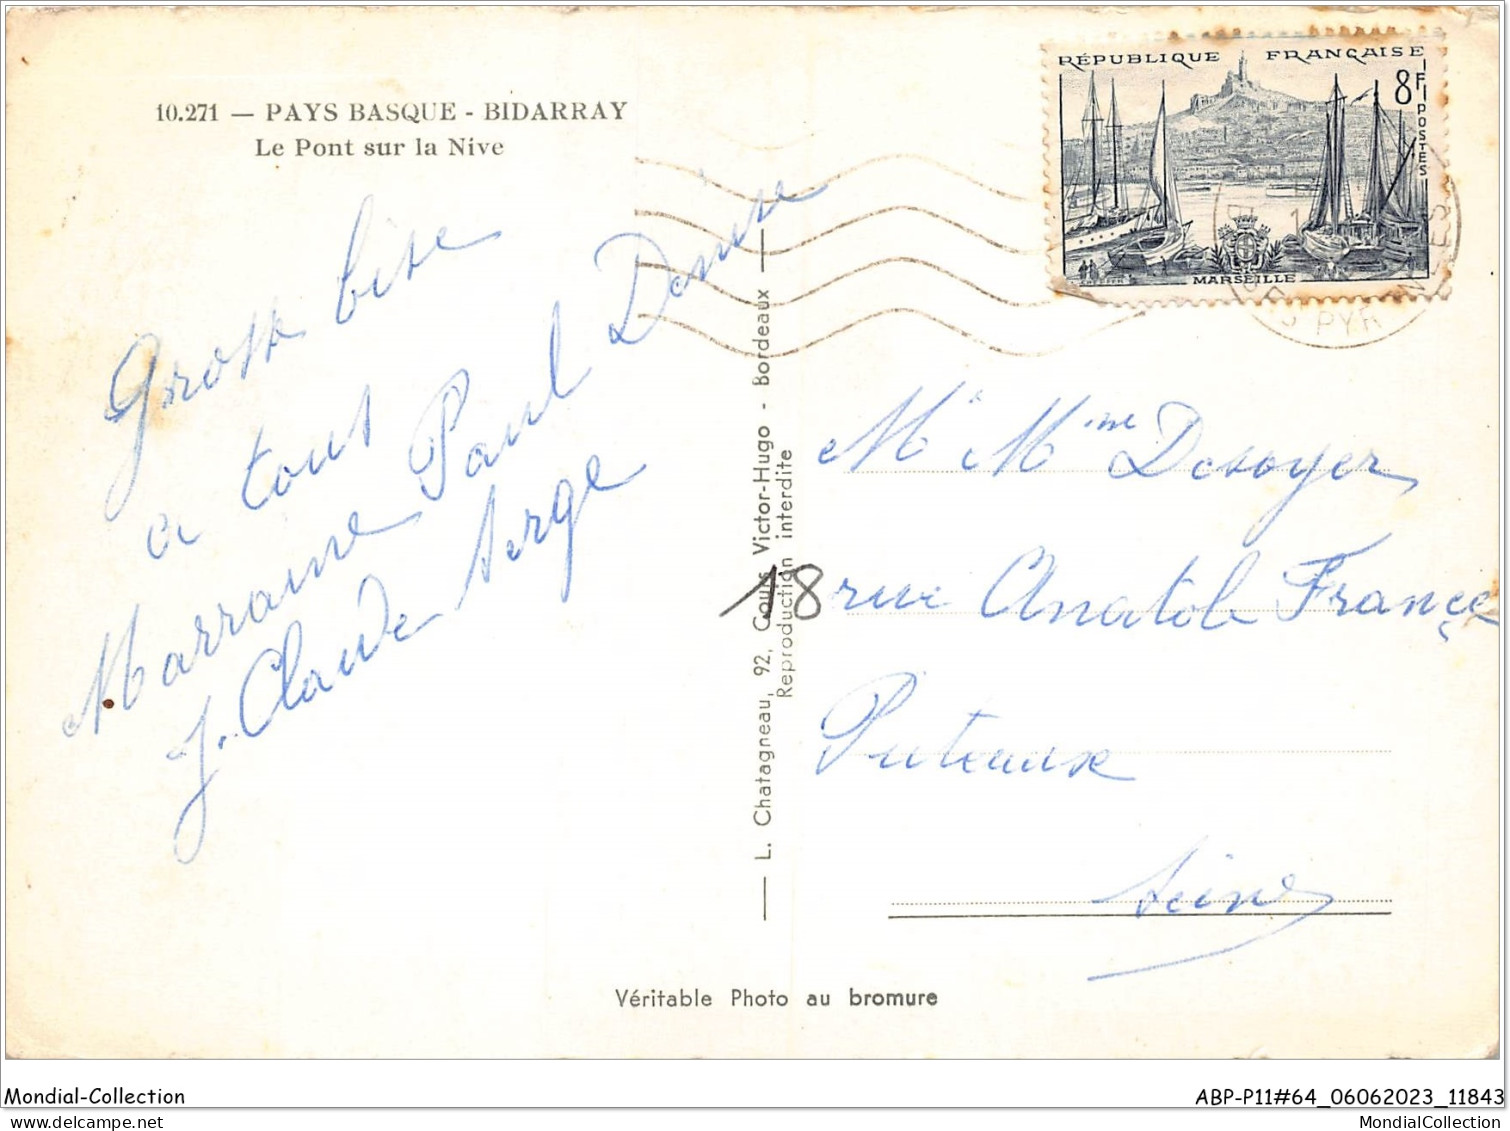 10.271 — PAYS BASQUE - BIDARRAY
Le Pont sur la Nive
RÉPUBLIQUE FRANÇAISE
8F
POSTES
MARSEILLE
PYR
Grosse bise
a tous
Marraine Paul Denise
J. Claude Serge
L. Chatagneau, 92, Cours Victor-Hugo - Bordeaux
Reproduction interdite
Mr Mme Desoyer
18 rue Anatole France
Puteaux
Seine
Véritable Photo au bromure
Mondial-Collection
ABP-P11#64_06062023_11843
MondialCollection